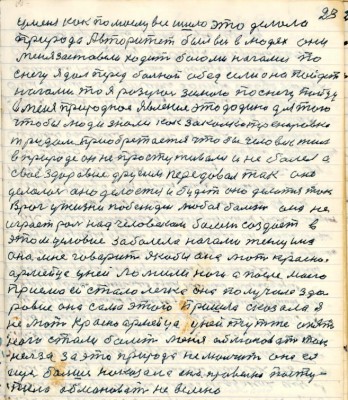 23
у меня как по моему всё шло это делала
природа Авторитет был в людях они
меня заставили ходить босыми ногами по
снегу я дал перед больной обед если она пойдет
ногами то я разуюсь зимою по снегу пойду
в меня природное явление это додано для того
чтобы люди знали как закалка тренировка
трудом приобретается чтобы человек жил
в природе он не простуживал и не болел а
своё здоровие другим передовал так оно
делалось оно делается и будет оно делатся так
Врог у жизни победим любая болезнь она не
играет рол над человеком болезни создает в
этом условие заболела ногами женщина
она мне говорит я кабы она мот красно
армейце у ней ломили ноги а после моего
приема ей стало легко она получила здо
ровие она сама этого пришла сказала я
не мот красно армейца у ней тут же опять
ноги стали болеть меня обмановать так
нельзя за это природа не молчит она ей
еще больше наказала она правильно посту-
пила обмановать не велено